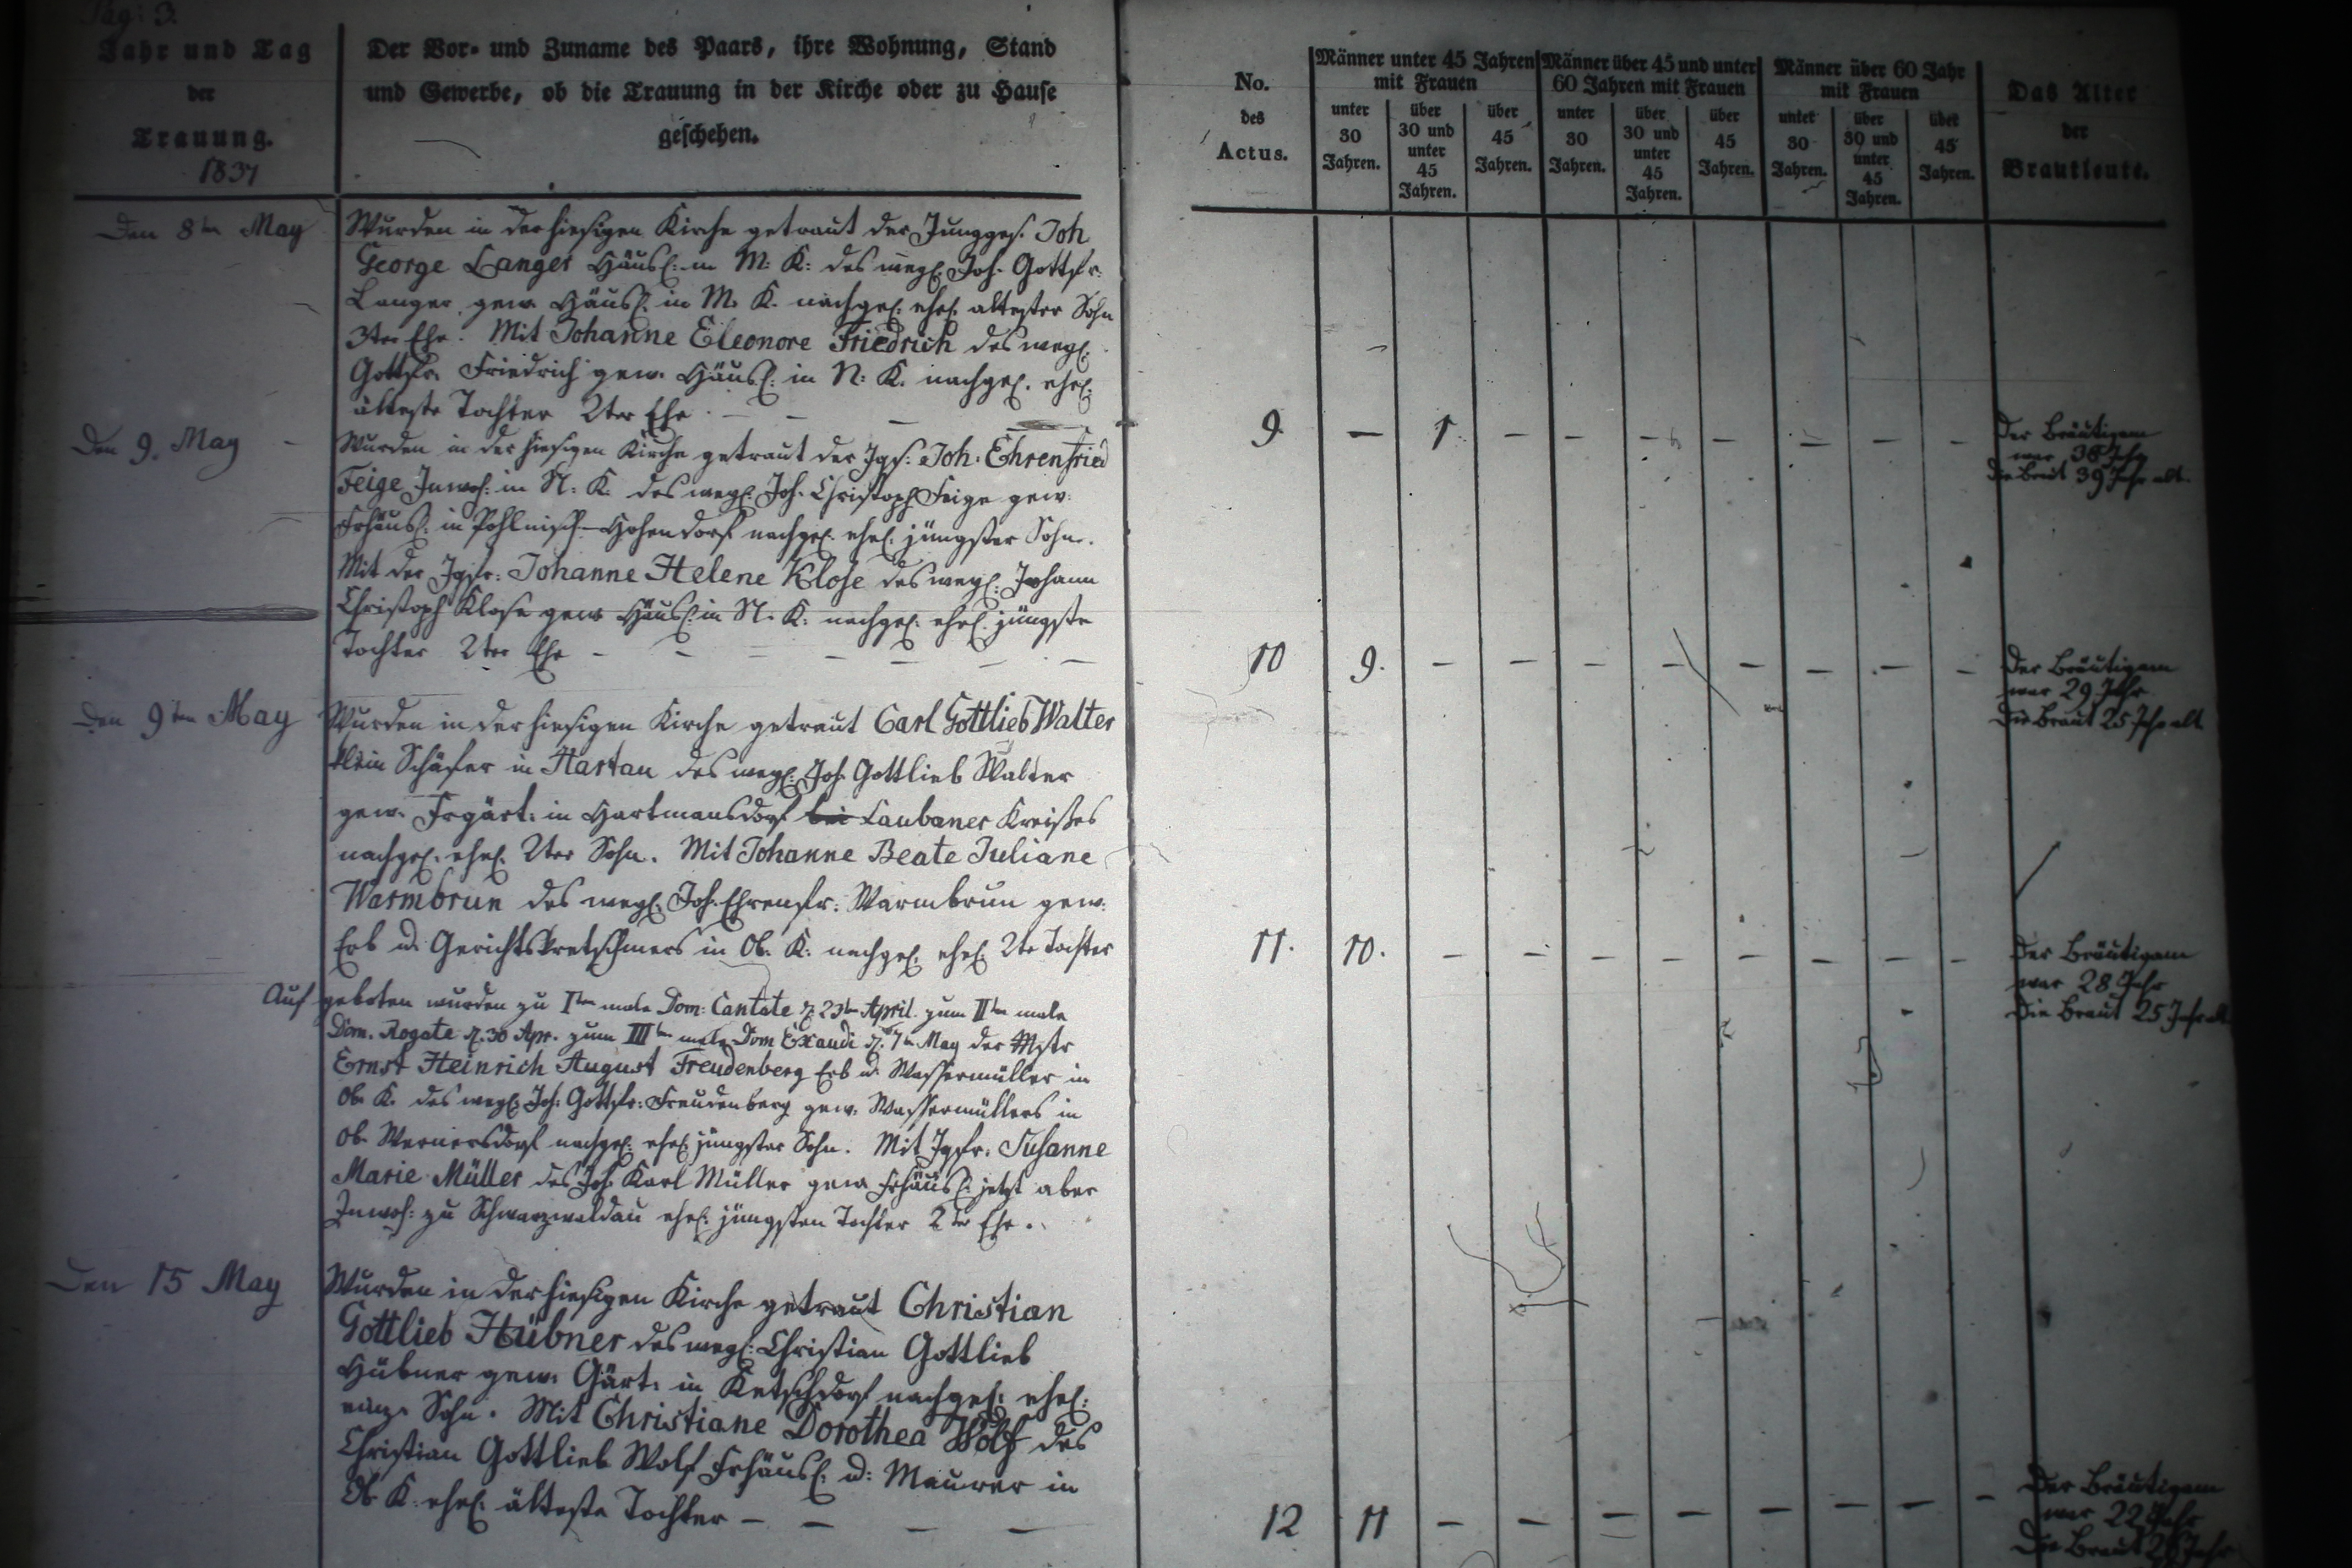 Pag: 3.
Jahr und Tag
der
Trauung.
1837
Der Vor- und Zuname des Paars, ihre Wohnung, Stand
und Gewerbe, ob die Trauung in der Kirche oder zu Hause
geschehen.
No.
des
Actus.
Männer unter 45 Jahren
mit Frauen
unter
30
Jahren.
über
30 und
unter
45
Jahren.
über
45
Jahren.
Männer über 45 und unter
60 Jahren mit Frauen
unter
30
Jahren.
über
30 und
unter
45
Jahren.
über
45
Jahren.
Männer über 60 Jahr
mit Frauen
unter
30
Jahren.
über
30 und
unter
45
Jahren.
über
45
Jahren.
Das Alter
der
Brautleute.
Den 8ten May
Wurden in der hiesigen Kirche getraut der Junges. Joh
George Langer Häusl: in M: K: des wegl. Joh. Gottfr.
Langer gew. Häusl. in M. K. nachgel. ehel. ältester Sohn
3ter Ehe. Mit Johanne Eleonore Friedrich des wegl.
Gottfr. Friedrich gew. Häusl: in N: K. nachgel. ehel.
älteste Tochter 2ter Ehe. — — — —
9 — 1. — — — — — — —
Der Bräutigam
war 38 Jhr
die Braut 39 Jahr alt.
Den 9. May
Wurden in der hiesigen Kirche getraut der Jgs: Joh: Ehrenfried
Feige Inwoh: in N: K. des wegl. Joh. Christoph Feige gew.
Frhäusl. in Pohlnisch-Hohendorf nachgel. ehel. jüngster Sohn.
Mit der Jgfr: Johanne Helene Klose des wegl: Johann
Christoph Klose gew Häusl: in N. K: nachgel. ehel. jüngste
Tochter 2ter Ehe — — — — — — —
10 9. — — — — — — — —
Der Bräutigam
war 29 Jahr
Die Braut 25 Jhr alt
Den 9ten May
Wurden in der hiesigen Kirche getraut Carl Gottlieb Walter
klein Schäfer in Hartau des wegl: Joh Gottlieb Walter
gew. Frgärt: in Hartmansdorf bei Laubaner Kreißes
nachgel. ehel. 2ter Sohn. Mit Johanne Beate Juliane
Warmbrun des wegl. Joh. Ehrenfr: Warmbrun gew.
Erb u. Gerichtskretschmers in Ob. K: nachgel. ehel. 2te Tochter
11. 10. — — — — — — — —
Der Bräutigam
war 28 Jahr
Die Braut 25 Jahr alt.
Auf geboten wurden zu Iten male Dom: Cantate d. 23ten April. zum IIten male
Dom. Rogate d. 30 Apr. zum IIIten male Dom Exaudi d. 7ten May der Mstr
Ernst Heinrich August Freudenberg Erb u. Wassermüller in
Ob. K. des wegl: Joh: Gottfr: Freudenberg gew. Wassermüllers in
Ob. Wernersdorf nachgel: ehel jüngster Sohn. Mit Jgfr. Susanne
Marie Müller des Joh Karl Müller gew Frhäusl: jetzt aber
Inwoh: zu Schwarzwaldau ehel: jüngsten Tochter 2ter Ehe.
Den 15 May
Wurden in der hiesigen Kirche getraut Christian
Gottlieb Hübner des wegl: Christian Gottlieb
Hübner gew. Gärt: in Ketschdorf nachgel: ehel:
einz. Sohn. Mit Christiane Dorothea Wolf des
Christian Gottlieb Wolf Frhäusl: u: Maurer in
Ob K. ehel. älteste Tochter — — — —
12 11 — — — — — — — —
Der Bräutigam
war 22 Jahr
Die Braut Jahr